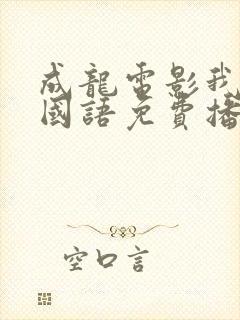 成龍電影我
國語免費播
空口言